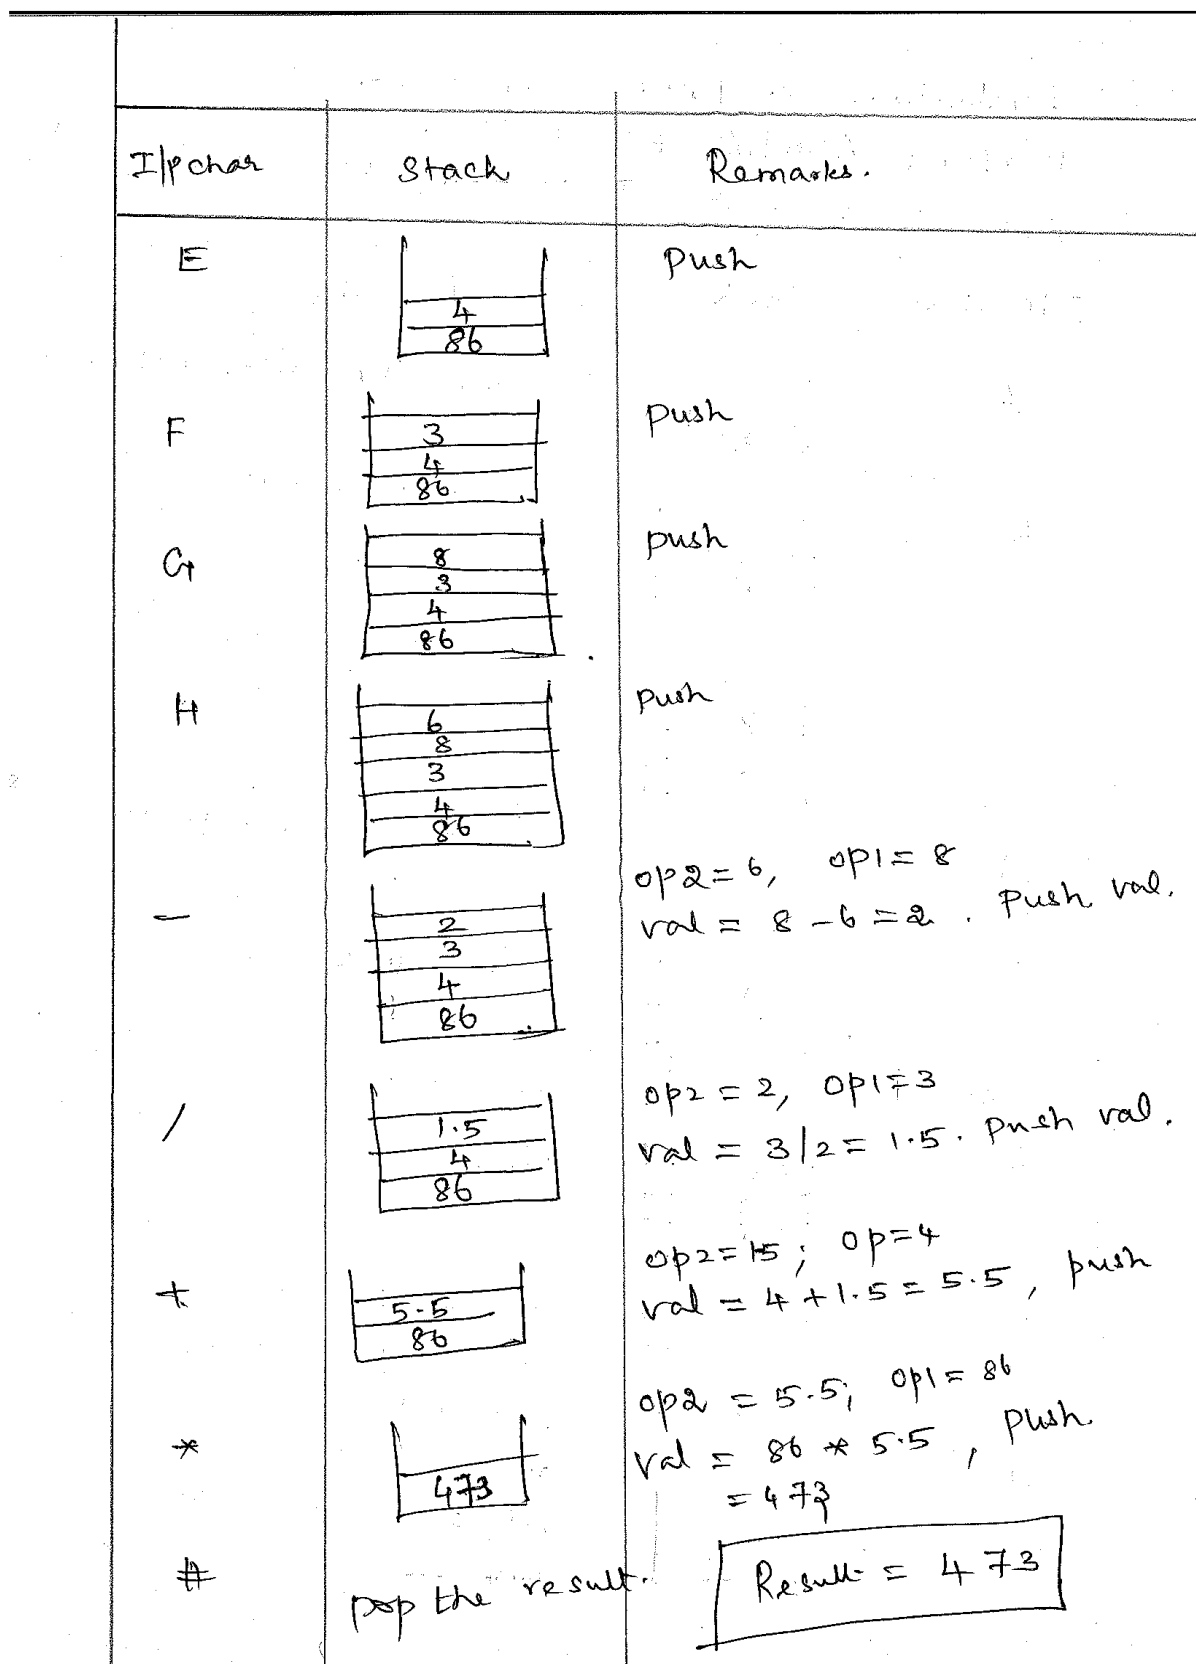 I/p char Stack Remarks.
E Push
4
86
F Push
3
4
86
G push
8
3
4
86
H push
6
8
3
4
86
op2 = 6, op1 = 8
- val = 8 - 6 = 2 . Push val.
2
3
4
86
op2 = 2, op1 = 3
/ val = 3/2 = 1.5. push val.
1.5
4
86
op2 = 15 ; op = 4
+ val = 4 + 1.5 = 5.5 , push
5.5
86
op2 = 5.5; op1 = 86
* val = 86 * 5.5 , push.
= 473
473
# pop the result. Result = 473